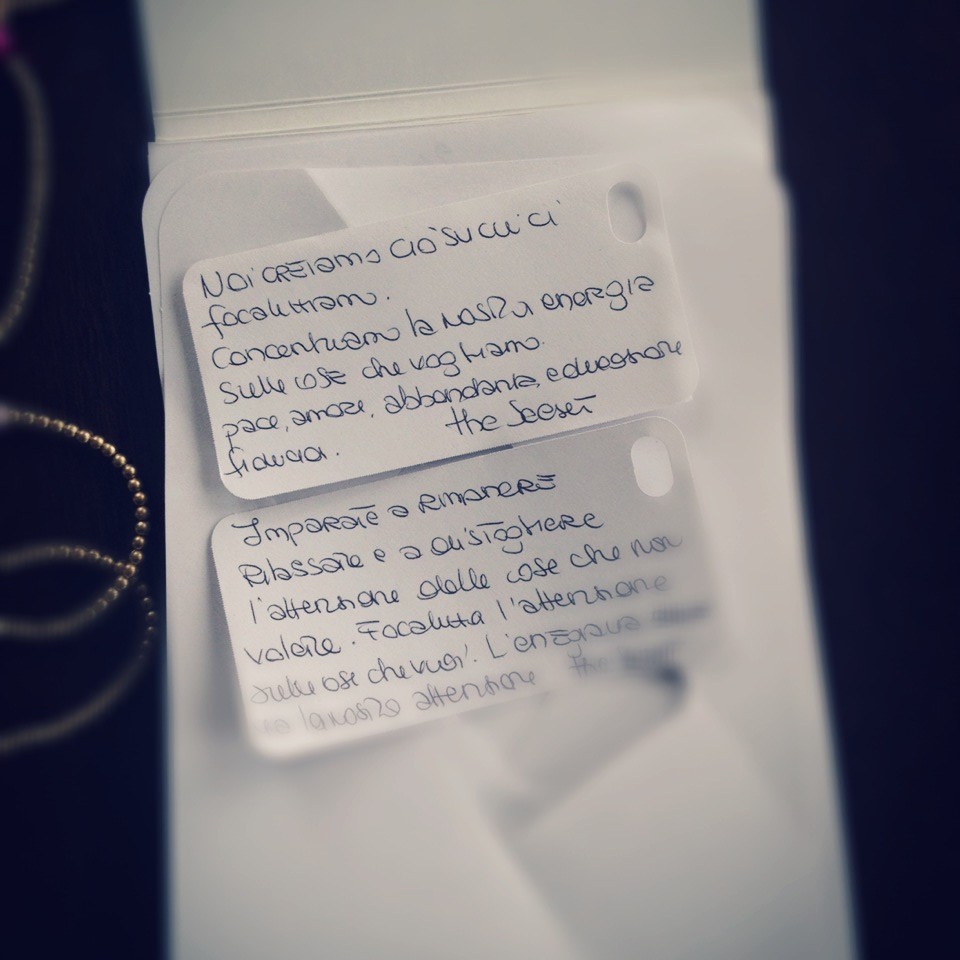 Noi creiamo ciò su cui ci
focalizziamo.
Concentriamo la nostra energia
sulle cose che vogliamo.
pace, amore, abbondanza, educazione
fiducia. the Secret
Imparate a rimanere
rilassate e a distogliere
l'attenzione dalle cose che non
volete. Focalizza l'attenzione
sulle cose che vuoi. L'energia va
la nostra attenzione the